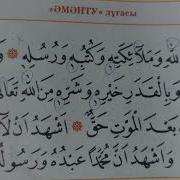 «ӘМӘНТУ» дұғасы
للّٰهِ وَمَلَٓائِكَتِهِ وَكُتُبِهِ وَرُسُلِهِ
وَبِالْقَدَرِ خَيْرِهِ وَشَرِّهِ مِنَ اللّٰهِ تَعَالٰى
بَعْدَ الْمَوْتِ حَقٌّ اَشْهَدُ اَنْ لَٓا
وَاَشْهَدُ اَنَّ مُحَمَّدًا عَبْدُهُ وَرَسُولُهُ